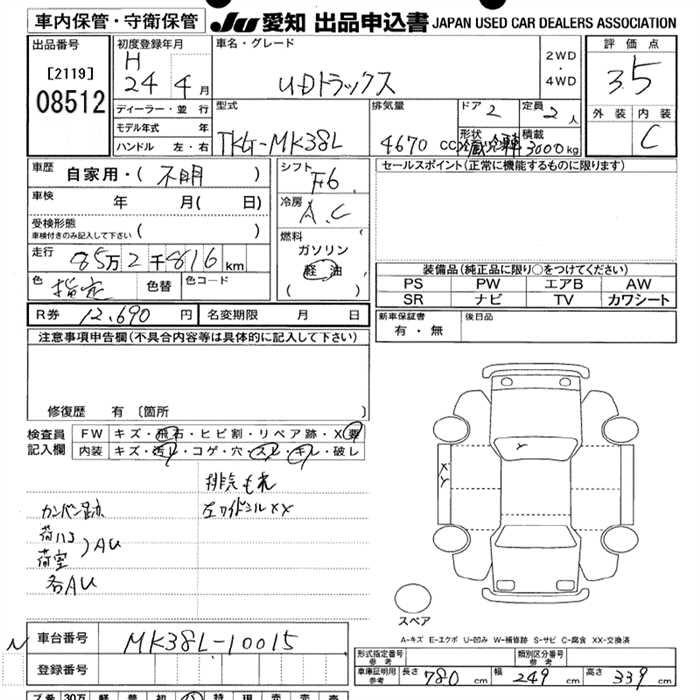 車内保管・守衛保管
JU 愛知 出品申込書 JAPAN USED CAR DEALERS ASSOCIATION
出品番号
[2119]
08512
初度登録年月
H
24 4月
ディーラー・並行
モデル年式 年
ハンドル 左・右
車名・グレード
UDトラックス
2WD
・
4WD
型式
TKG-MK38L
排気量
4670 CC
ドア 2
定員 2 人
形状
積載 3000kg
評価点
3.5
外装 内装
C
車歴 自家用・(不明)
車検 年 月( 日)
受検形態
車検付きのみ記入して下さい ( )
走行 85万2千816km
色 指定 色替 色コード
R券 12,690円 名変期限 月 日
シフト
F6
冷房
A.C
燃料
ガソリン
軽油
( )
セールスポイント(正常に機能するものに限ります)
装備品(純正品に限り○をつけてください)
PS PW エアB AW
SR ナビ TV カワシート
新車保証書
有・無
後日品
注意事項申告欄(不具合内容等は具体的に記入して下さい)
修復歴 有 〔箇所 〕
検査員 FW キズ・飛石・ヒビ割・リペア跡・X要
記入欄 内装 キズ・汚レ・コゲ・穴・スレ・キレ・破レ
排気もれ
カンバン跡 左ワイドシルXX
荷ハコ
荷室 AU
各AU
X
XY
スペア
A-キズ E-エクボ U-凹み W-補修跡 S-サビ C-腐食 XX-交換済
N 車台番号 MK38L-10015
登録番号
形式指定番号 参考 類別区分番号 参考
車庫証明用 参考 長さ 780cm 幅 249cm 高さ 339cm